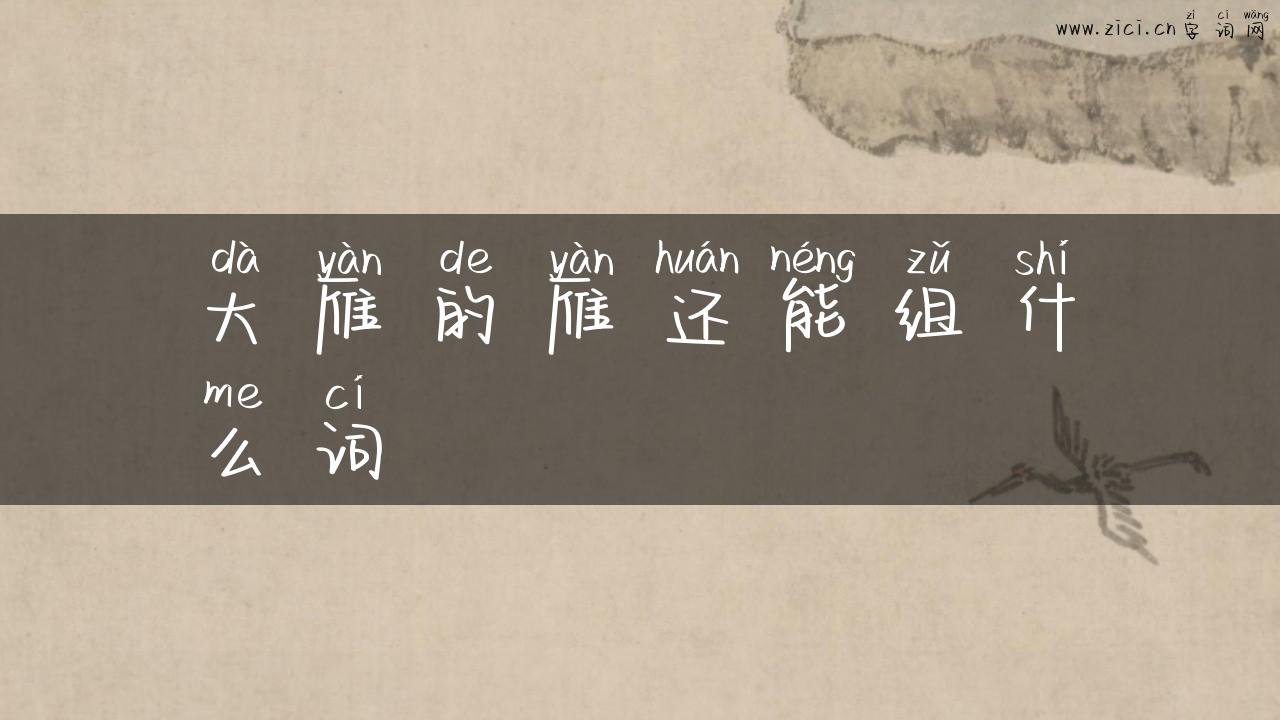 zì cí wǎng
www.zici.cn 字 词 网
dà yàn de yàn huán néng zǔ shí
大 雁 的 雁 还 能 组 什
me cí
么 词